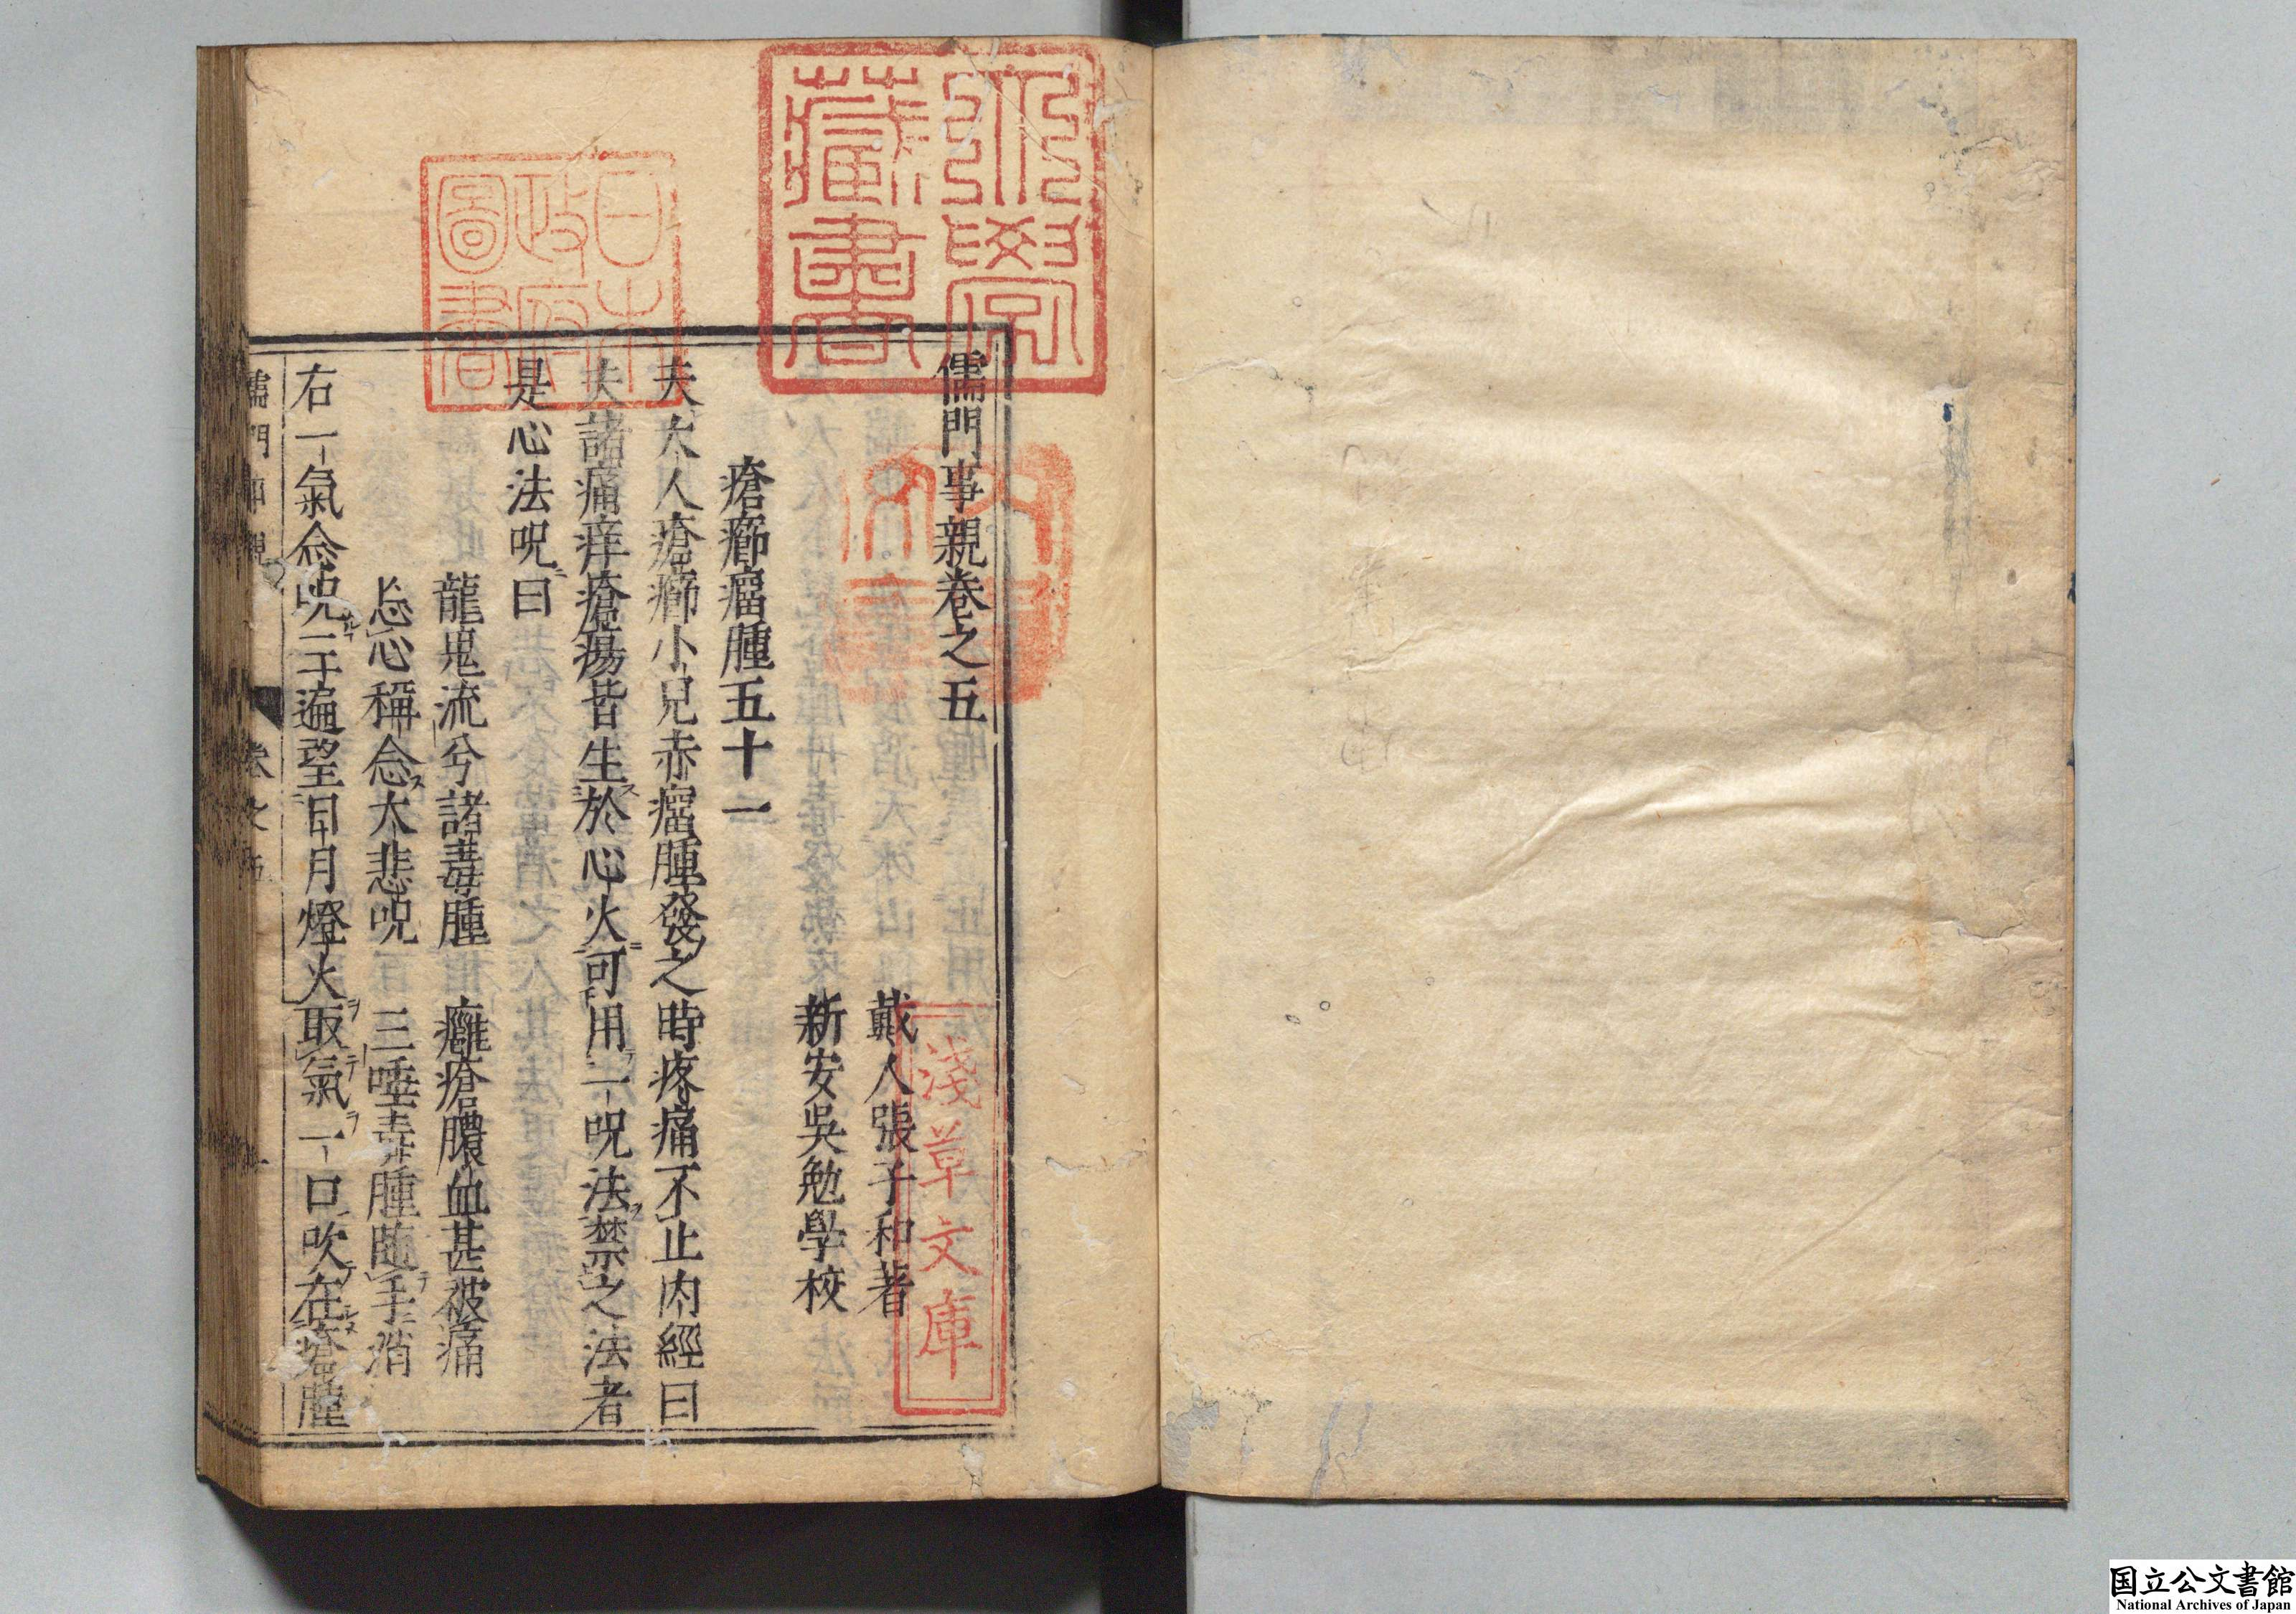 儒門事親卷之五
戴人張子和著
新安吳勉學校
瘡癤瘤腫五十一
夫大人瘡癤小兒赤瘤腫發之時疼痛不止內經曰
夫諸痛痒瘡瘍皆生於心火可用一呪法禁之法者
是心法呪曰
龍鬼流兮諸毒腫 癰瘡膿血甚被痛
忘心稱念大悲呪 三唾毒腫隨手消
右一氣念呪三遍望日月燈火取氣一口吹在瘡腫
儒門事親 卷之五 一
弘文學院藏書
日本政府圖書
淺草文庫
国立公文書館
National Archives of Japan